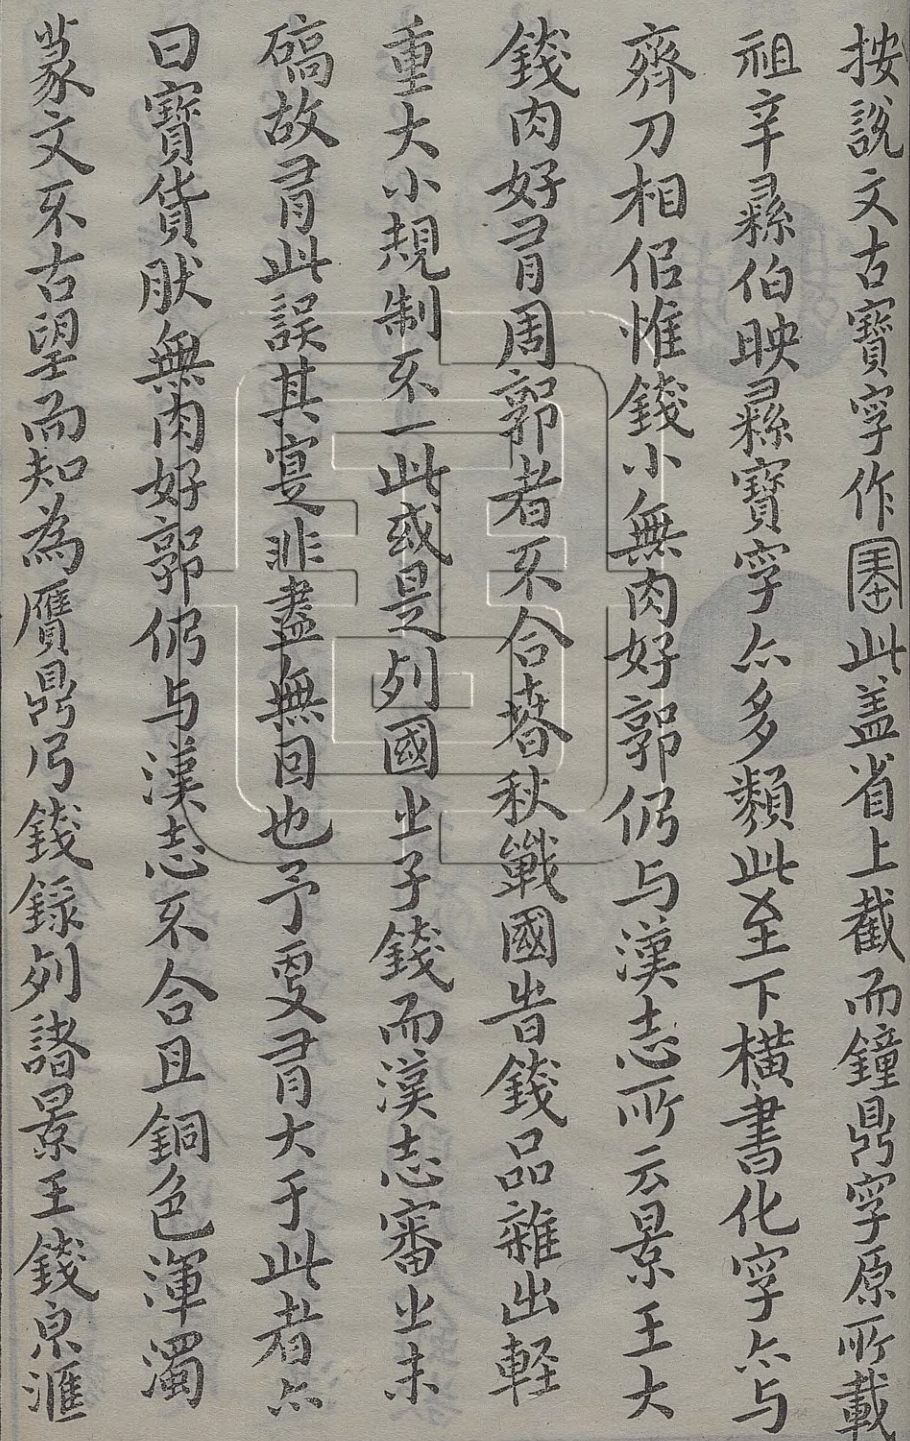 按說文古寶字作𤦲此盖省上截而鐘鼎字原所載
祖辛彝伯映彝寶字亦多類此至下橫書化字亦与
齊刀相佀惟錢小無肉好郭仍与漢志所云景王大
錢肉好有周郭者不合春秋戰國時錢品雜出輕
重大小規制不一此或是列國之子錢而漢志審之未
碻故有此誤其寔非盡無因也予更有大于此者亦
曰寶貨肰無肉好郭仍与漢志不合且銅色渾濁
篆文不古望而知為贋鼎乃錢錄列諸景王錢泉滙